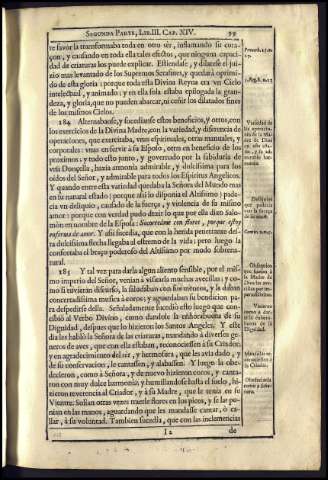 SEGUNDA PARTE, LIB. III. CAP. XIV. 99
te favor la transformaba toda en otro sèr, inflamando su cora-
çon, y causando en toda ella tales efectos, que ninguna capaci-
dad de criaturas los puede explicar. Estiendase, y dilatese el jui-
zio mas levantado de los Supremos Serafines, y quedarà oprimi-
do de esta gloria; porque toda la divina Reyna era vn Cielo
intelectual, y animado: y en ella sola estaba epilogada la gran-
deza, y gloria, que no pueden abarcar, ni ceñir los dilatados fines
de los mismos Cielos.
184 Alternabanse, y sucedianse estos beneficios, y otros, con
los exercicios de la Divina Madre, con la variedad, y diferencia de
operaciones, que exercitaba, vnas espirituales, otras manuales, y
corporales: vnas en servir à su Esposo, otras en beneficio de los
proximos: y todo esto junto, y governado por la sabiduria de
vna Doncella, hazia armonia admirable, y dulcissima para los
oìdos del Señor, y admirable para todos los Espiritus Angelicos.
Y quando entre esta variedad quedaba la Señora del Mundo mas
en su natural estado; porque assi lo disponia el Altissimo; pade-
cia vn deliquio, causado de la fuerça, y violencia de su mismo
amor: porque con verdad pudo dezir lo que por ella dixo Salo-
mon en nombre de la Esposa: Socorredme con flores, porque estoy
enferma de amor. Y assi sucedia, que con la herida penetrante de
esta dulcissima flecha llegaba al estremo de la vida; pero luego la
confortaba el braço poderoso del Altissimo por modo sobrena-
tural.
185 Y tal vez para darla algun aliento sensible, por el mis-
mo imperio del Señor, venian à visitarla muchas avecillas; y co-
mo si tuvieran discurso, la saludaban con sus meneos, y la daban
concertadissima musica à coros; y aguardaban su bendicion pa-
ra despedirse della. Señaladamente sucediò esto luego que con-
cibiò al Verbo Divino, como dandole la enhorabuena de su
Dignidad, despues que lo hizieron los Santos Angeles. Y este
dia les hablò la Señora de las criaturas, mandando à diversos ge-
neros de aves, que con ella estaban, reconociessen à su Criador,
y en agradecimiento del sèr, y hermosura, que les avia dado, y
de su conservacion, le cantassen, y alabassen. Y luego la obe-
decieron, como à Señora, y de nuevo hizieron coros, y canta-
ron con muy dulce harmonia; y humillandose hasta el suelo, hi-
zieron reverencia al Criador, y à su Madre, que le tenia en su
Vientre. Solian otras vezes traerle flores en los picos, y se las po-
nian en las manos, aguardando que les mandasse cantar, ò ca-
llar, à su voluntad. Tambien sucedia, que con las inclemencias
I 2 de